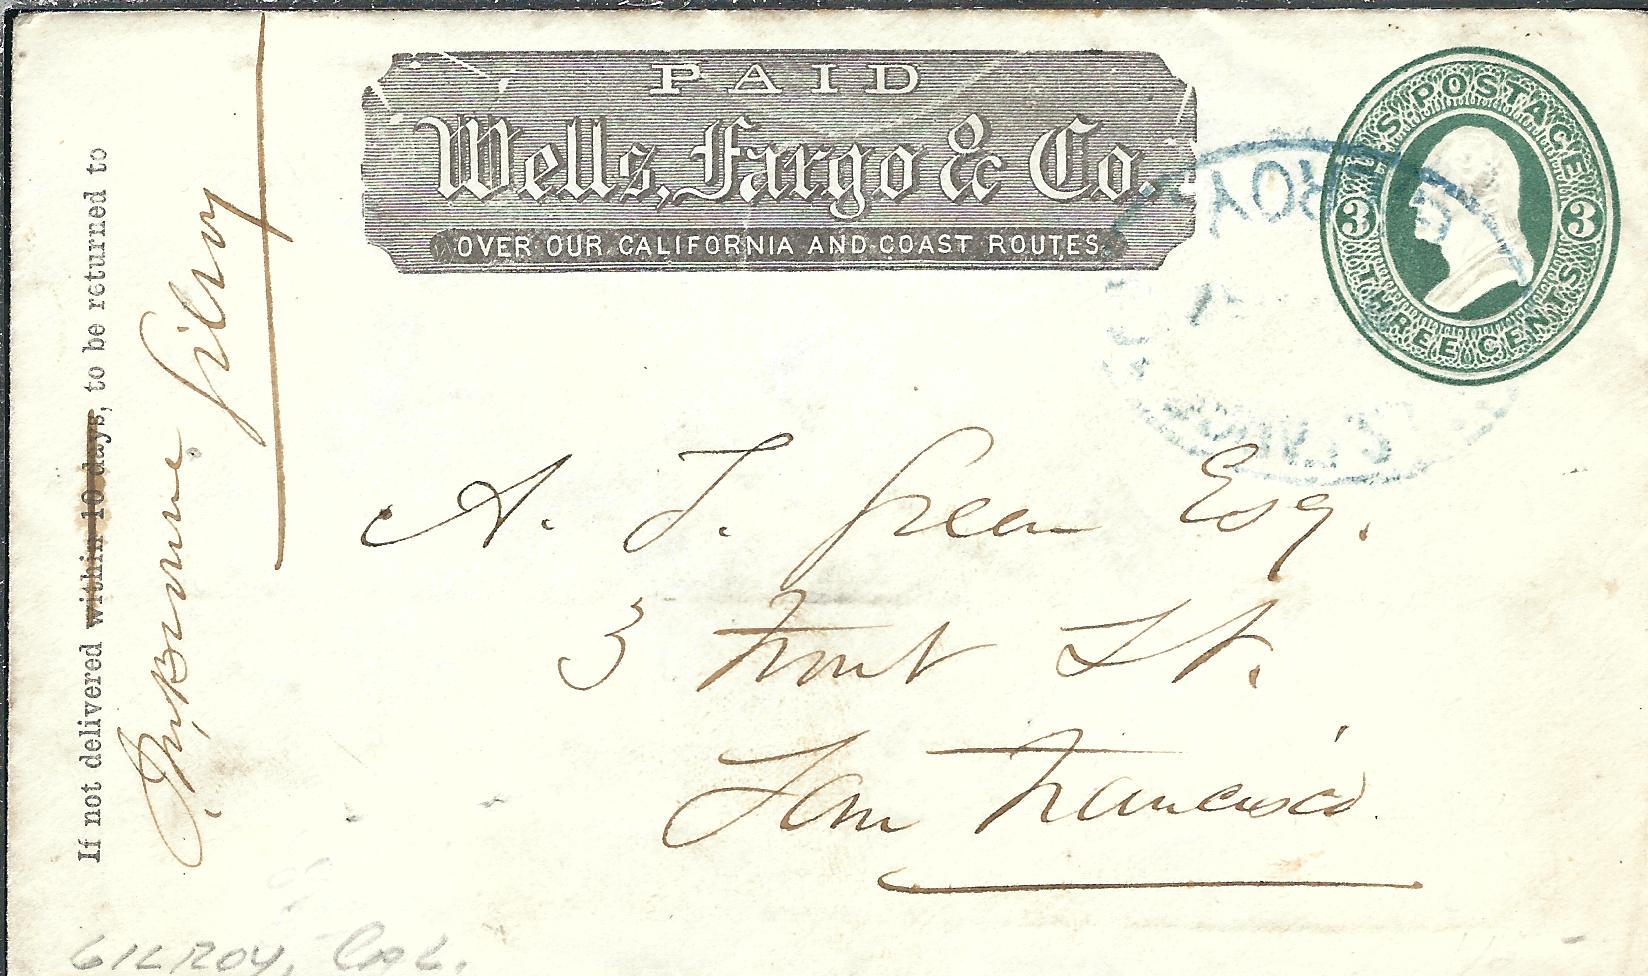 PAID
Wells, Fargo & Co.
OVER OUR CALIFORNIA AND COAST ROUTES.
U.S. POSTAGE
3 3
THREE CENTS
GILROY
If not delivered within 10 days, to be returned to
Gilroy
A. T. Green Esq.
3 Front St.
San Francisco
GILROY, CAL.